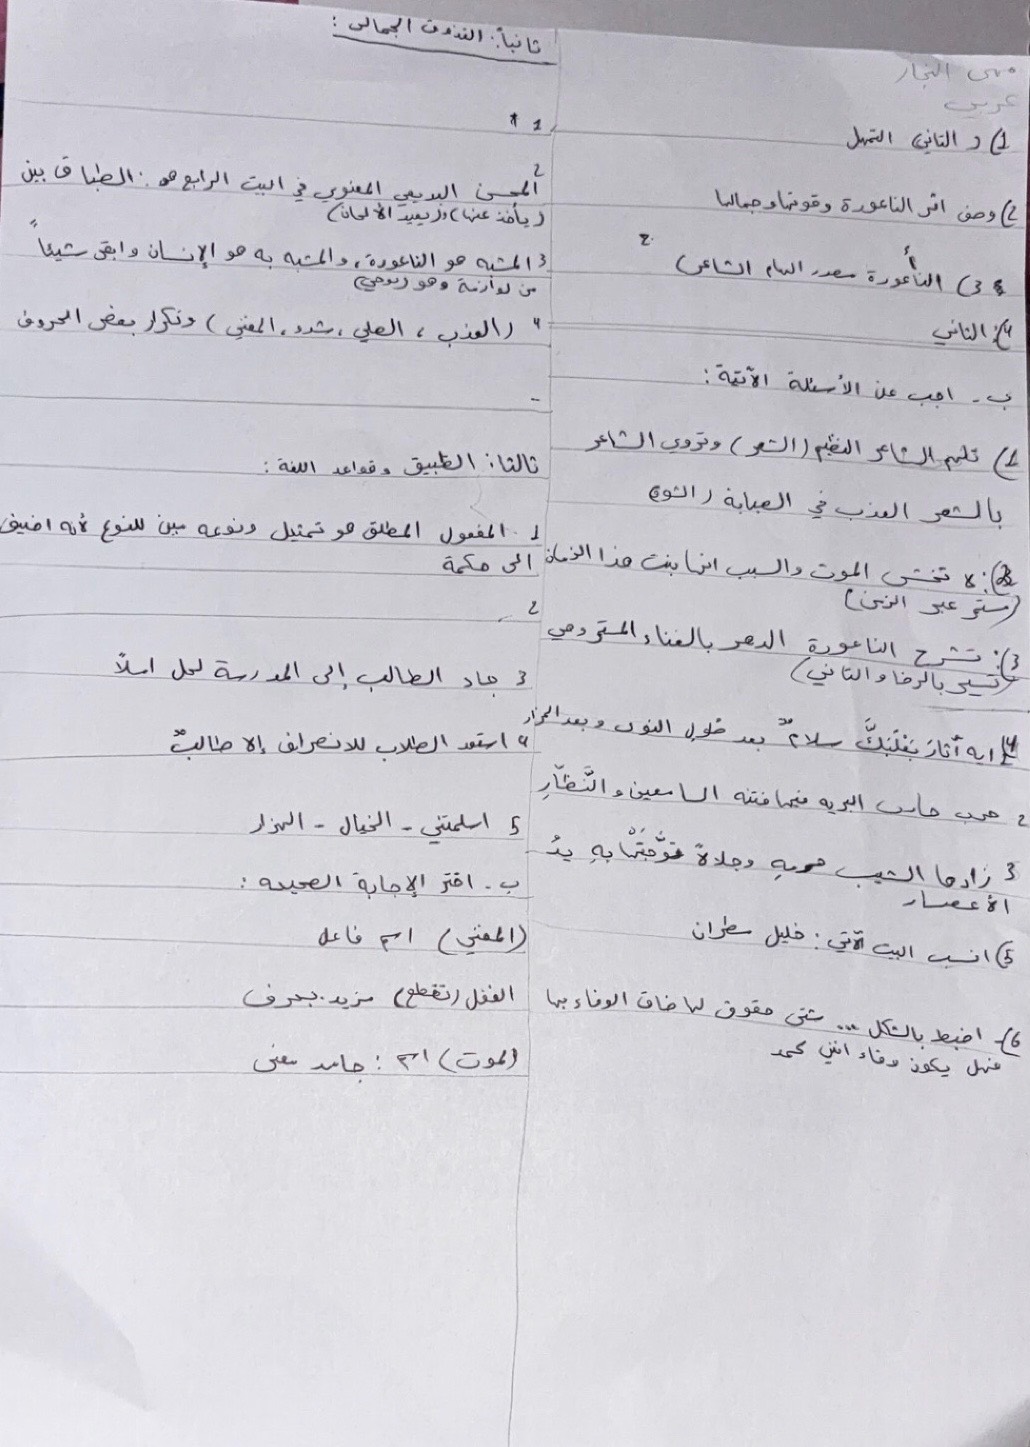 مهى النجار
عربي
1) د التاني التمهل
2) وصف اثر الناعورة وقوتها وجمالها
3) الناعورة مصدر الهام الشاعر)
4): الثاني
ب - اجب عن الأسئلة الآتية:
1) تلهم الشاعر النظيم (الشعر) وتروي الشاعر
بالشعر العذب في الصبابة (الشوق
2): لا تخشى الموت والسبب انها بنت هذا الزمان
(مستمر عبر الزمن)
3): تشرح الناعورة الدهر بالغناء المستر وهي
(تسير بالرضا والتاني)
4) ايه أثارَ بَعْلَبَكَّ سلامٌ بعد طول النوى وبعد المزار
2 هرب حارت البريه فيها فتنه السامعين والنَّظّارِ
3 زادها الشيب حرمه وجلالاً توَّجَتْها بهِ يدُ
الأعصار
5) انسب البيت الآتي: خليل مطران
6) - اضبط بالشكل ... شتى حقوق لها ضاق الوفاء بها
فهل يكون وفاء انني محمد
ثانياً: التذوق الجمالي:
1 *
2 المحسن البديعي المعنوي في البيت الرابع هو: الطباق بين
(يأخذ عنها) و(يعيد الألحان)
3 المشبه هو الناعورة، والمشبه به هو الإنسان وابقى شيئاً
من لوازمة وهو (توحي)
4 (العذب، العلي، شدو، المغني) وتكرار بعض الحروف
-
ثالثا: التطبيق وقواعد اللغة:
1. المفعول المطلق هو تمثيل ونوعه مبين للنوع لأنه اضيف
الى حكمة
2
3 جاد الطالب إلى المدرسة لعل املاً
4 استعد الطلاب للانصراف إلا طالبٌ
5 اسلمتني - الخيال - الهزار
ب - اختر الإجابة الصحيحه:
(المغني) اسم فاعل
الفعل (تقطع) مزيد بحرف
(الموت) اسم: جامد معنى